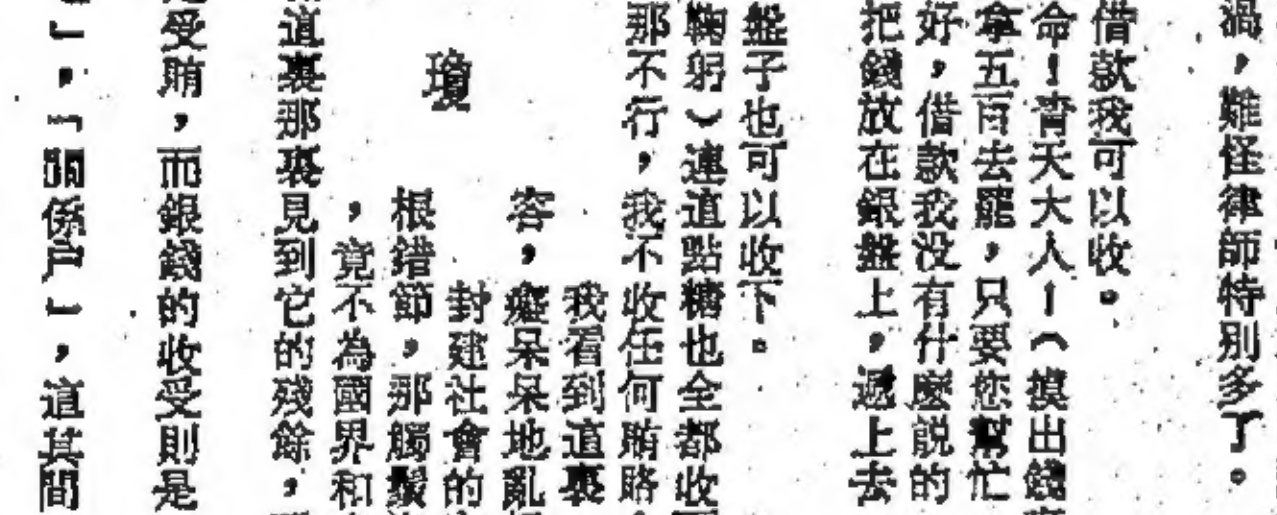 禍，難怪律師特別多了。
借款我可以收。
命！青天大人！（摸出錢
拿五百去罷，只要您幫忙
好，借款我没有什麼説的
把錢放在銀盤上，遞上去
盤子也可以收下。
鞠躬）連這點糖也全都收
那不行，我不收任何賄賂
我看到這裏
容，癡呆呆地亂
封建社會的
根錯節，那觸鬚
，竟不為國界和
道裏那裏見到它的殘餘，
瓊
受賄，而銀錢的收受則是
」，「關係户」，這其間